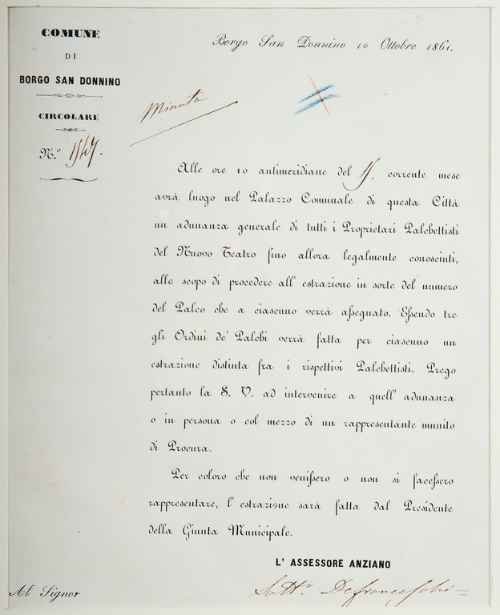 COMUNE
DI
BORGO SAN DONNINO
CIRCOLARE
N.º 1547.
Borgo San Donnino 10 Ottobre 1861.
Minuta
Alle ore 10 antimeridiane del corrente mese
avrà luogo nel Palazzo Comunale di questa Città
un adunanza generale di tutti i Proprietari Palchettisti
del Nuovo Teatro fino allora legalmente conosciuti,
allo scopo di procedere all' estrazione in sorte del numero
del Palco che a ciascuno verrà assegnato. Essendo tre
gli Ordini de' Palchi verrà fatta per ciascuno un
estrazione distinta fra i rispettivi Palchettisti. Prego
pertanto la S. V. ad intervenire a quell' adunanza
o in persona o col mezzo di un rappresentante munito
di Procura.
Per coloro che non venissero o non si facessero
rappresentare, l' estrazione sarà fatta dal Presidente
della Giunta Municipale.
L' ASSESSORE ANZIANO
Al Signor